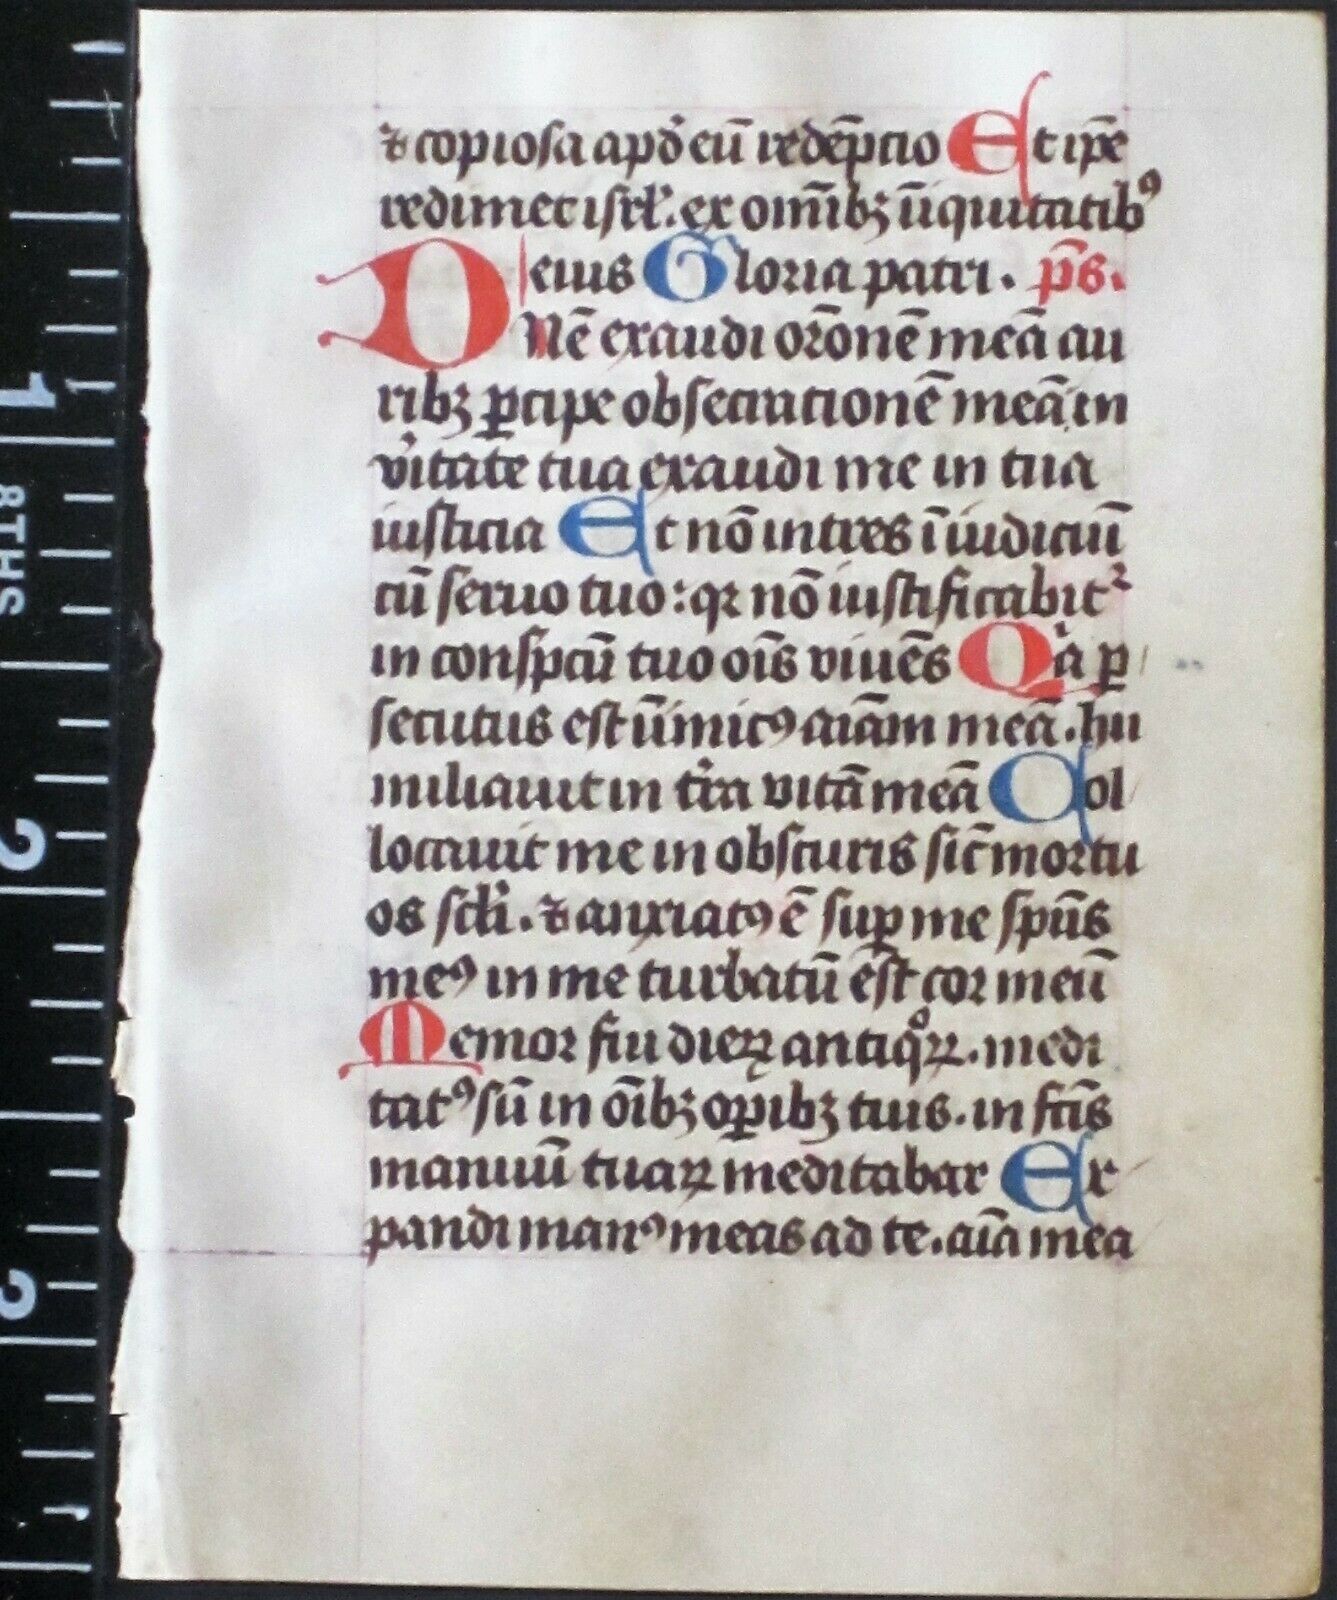 ⁊ copiosa apd̉ eū redēpcio Et ip̄e
redimet isrl̓. ex om̄ibꝫ īiquitatibꝰ
eius Gloria patri. p̄s.
Dn̄ē exaudi or̄onē meā au
ribꝫ ꝑcipe obsecrationē meā in
v̓itate tua exaudi me in tua
iusticia Et nō intres ī iudiciū
cū seruo tuo: qꝛ nō iustificabitᷣ
in conspc̄u tuo oīs viuēs Qͥa ꝑ
secutus est īimicꝯ aīam meā. hu
miliauit in t̓ra vitā meā Col
locauit me in obscuris sic̄ mortu
os sc̄li. ⁊ anxiatꝯ ē suꝑ me sp̄us
meꝯ in me turbatū est cor meū
Memor fui dieꝝ antiqͦꝝ. medi
tatꝯ sū in oībꝫ oꝑibꝫ tuis. in fc̄is
manuū tuaꝝ meditabar Ex
pandi manꝯ meas ad te. aīa mea
1
8THS
2
2